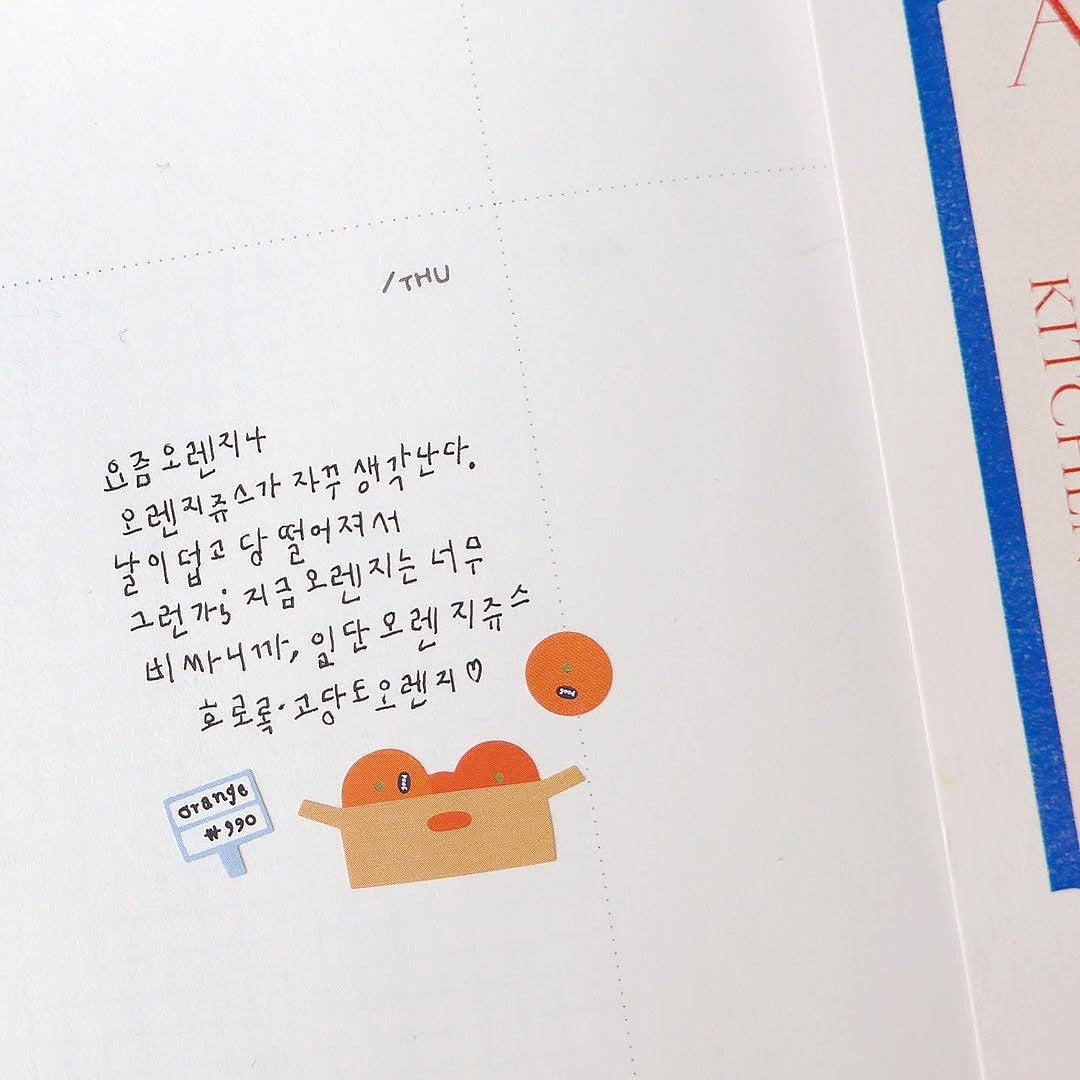 /THU
요즘 오렌지나
오렌지쥬스가 자꾸 생각난다.
날이 덥고 당 떨어져서
그런가; 지금 오렌지는 너무
비싸니까, 일단 오렌지쥬스
호로록· 고당도오렌지♡
orange
₩990
A
KITCHEN